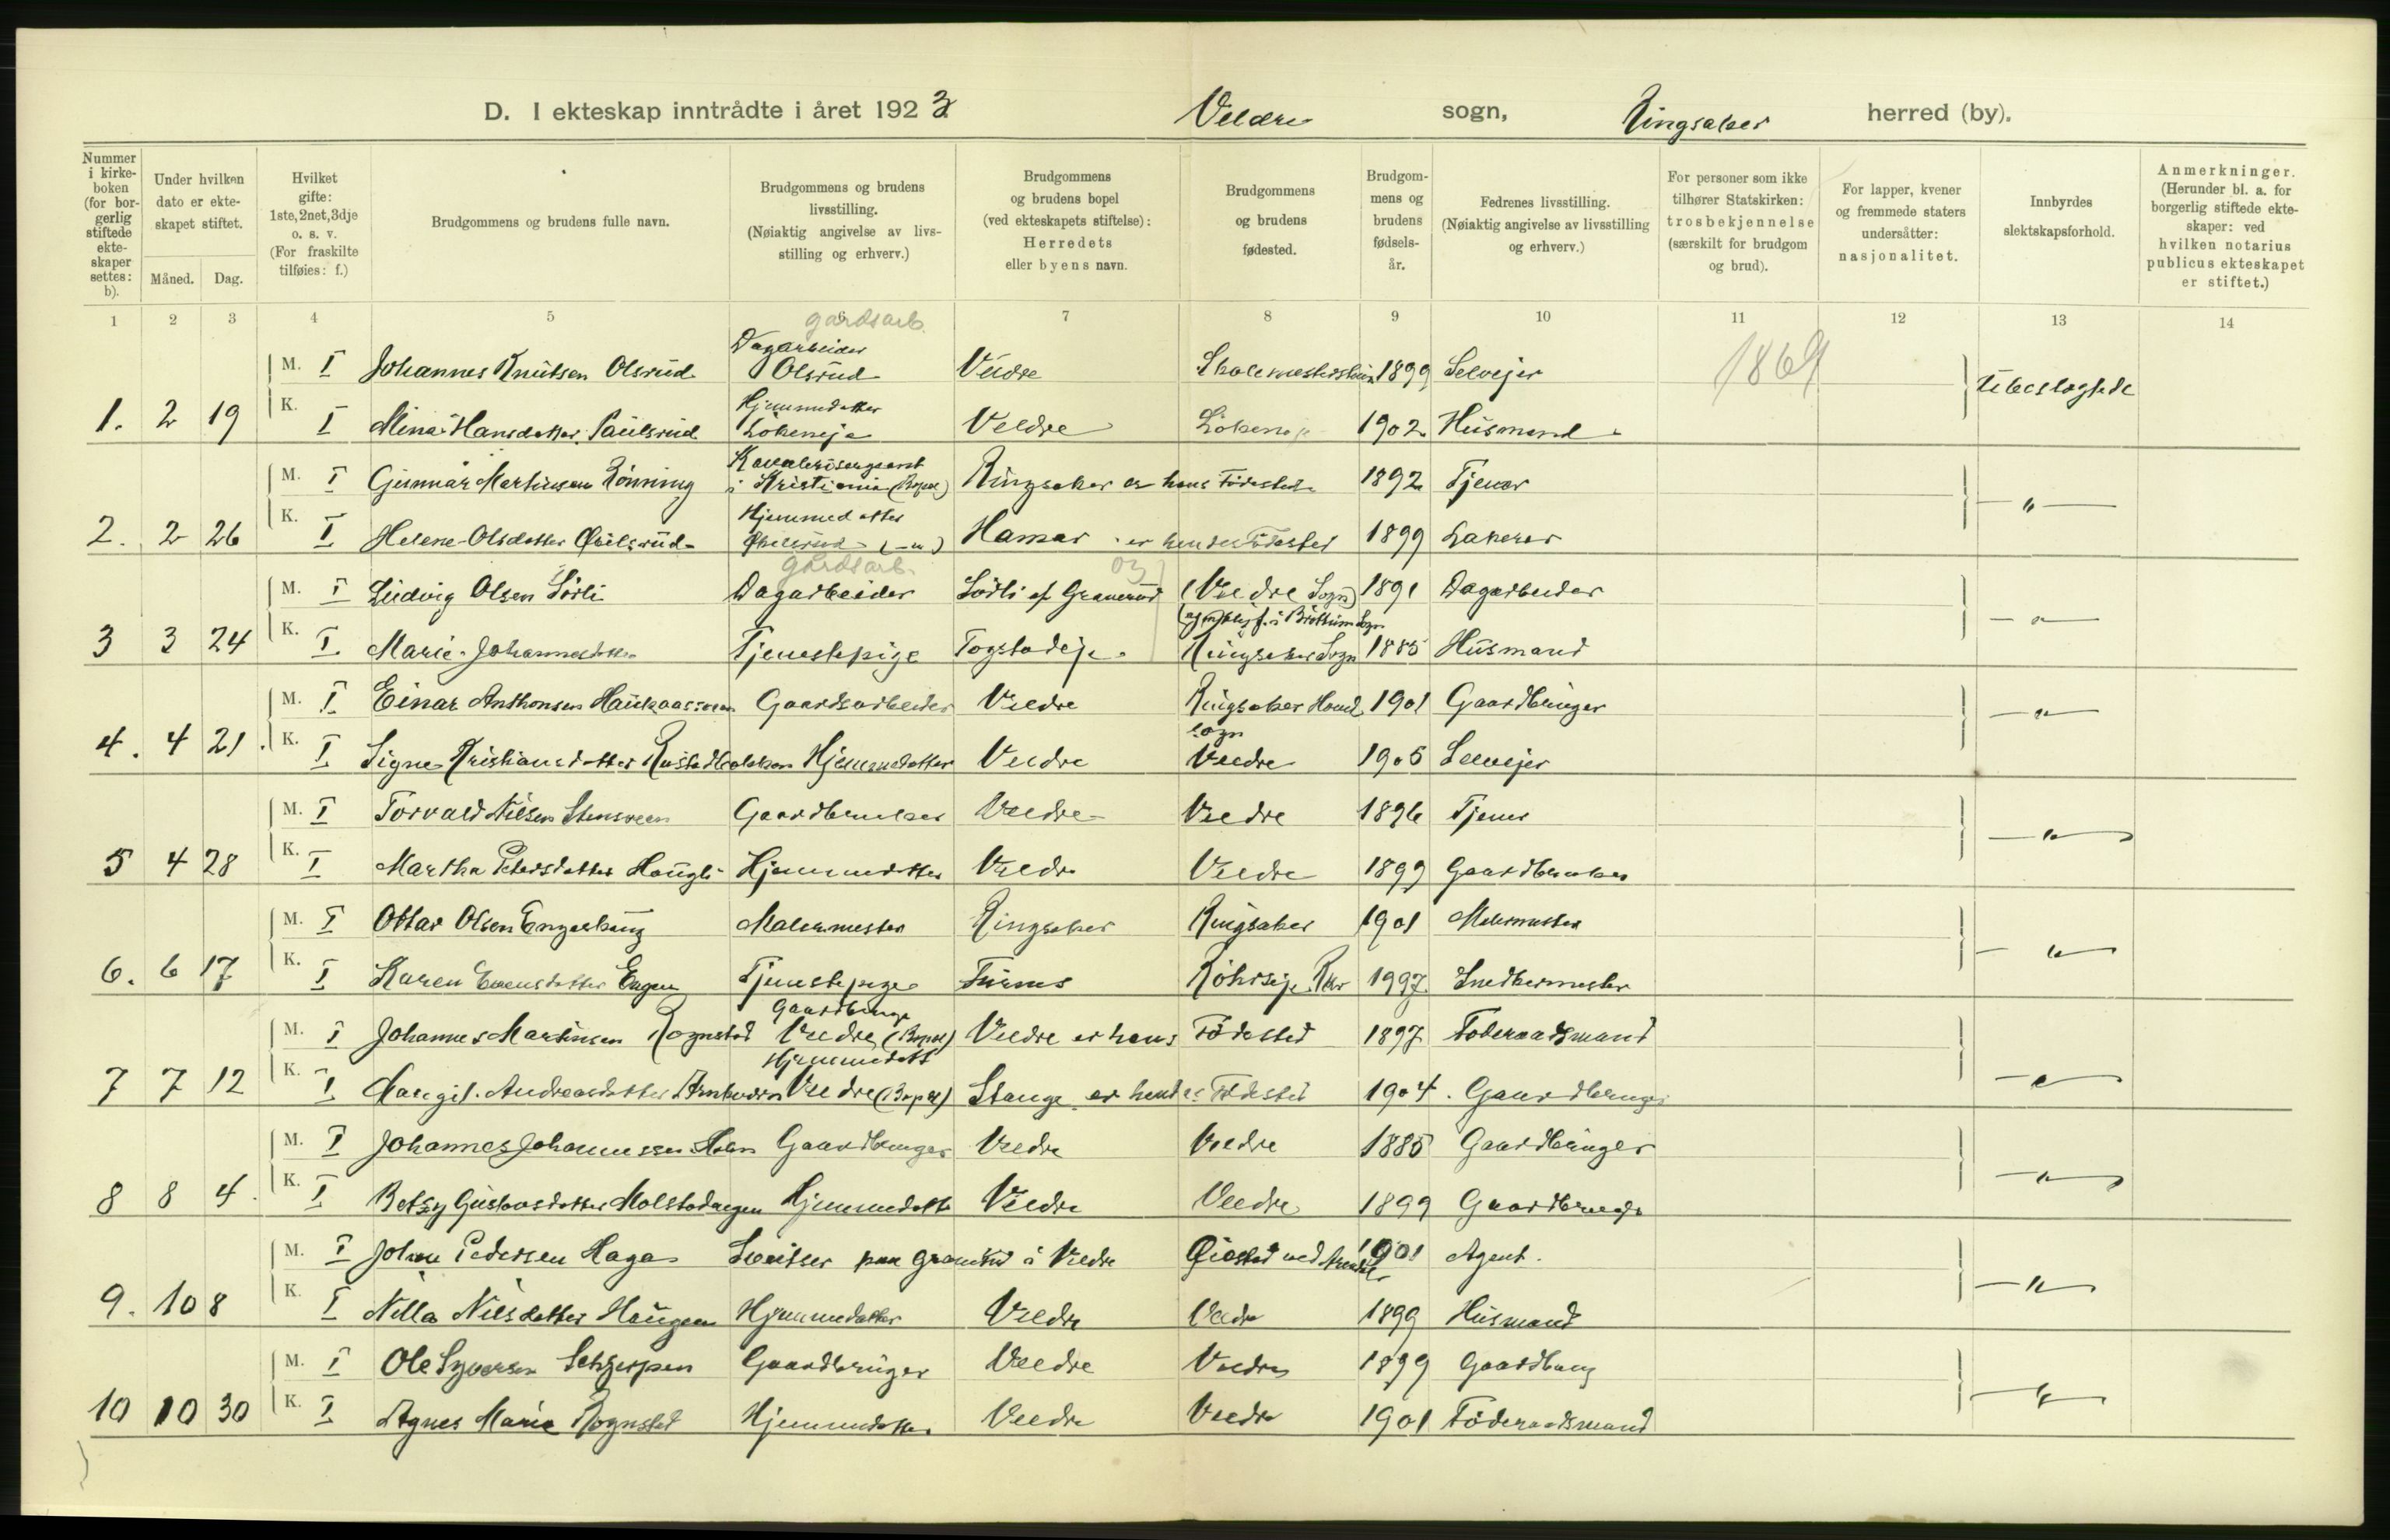 D. I ekteskap inntrådte i året 1923 Veldre sogn, Ringsaker herred (by).
Nummer i kirkeboken (for borgerlig stiftede ekteskaper settes: b).
Under hvilken dato er ekteskapet stiftet.
Måned. Dag.
Hvilket gifte: 1ste, 2net, 3dje o. s. v. (For fraskilte tilføies: f.)
Brudgommens og brudens fulle navn.
Brudgommens og brudens livsstilling. (Nøiaktig angivelse av livsstilling og erhverv.)
Brudgommens og brudens bopel (ved ekteskapets stiftelse): Herredets eller byens navn.
Brudgommens og brudens fødested.
Brudgommens og brudens fødselsår.
Fedrenes livsstilling. (Nøiaktig angivelse av livsstilling og erhverv.)
For personer som ikke tilhører Statskirken: trosbekjennelse (særskilt for brudgom og brud).
For lapper, kvener og fremmede staters undersåtter: nasjonalitet.
Innbyrdes slektskapsforhold.
Anmerkninger. (Herunder bl. a. for borgerlig stiftede ekteskaper: ved hvilken notarius publicus ekteskapet er stiftet.)
1 2 3 4 5 6 7 8 9 10 11 12 13 14
gardsarb.
Dagarbeider
M. I Johannes Knutsen Olsrud Olsrud Veldre 1899 Selvejer 1869
Hjemmedatter
1. 2 19 K. I Mina Hansdatter Paulsrud Løkeneje Veldre Løkeneje 1902 Husmand Ubeslægtede
Kavalerisergeant
M. I Gunnar Martinsen Rønning i Kristiania (Bopel) Ringsaker er hans Fødested 1892 Tjener
Hjemmedatter
2. 2 26 K. I Helene Olsdatter (-"-) Hamar er hendes Fødested 1899 Lakerer -"-
gårdsarb. 03
M. I Ludvig Olsen Sørli Dagarbeider Sørli af (Veldre Sogn) 1891 Dagarbeider
i Brøttum Sogn
3 3 24 K. I Marie Johannesdatter Tjenestepige Togstadeje Ringsaker Sogn 1885 Husmand -"-
M. I Einar Anthonsen Gaardsarbeider Veldre Ringsaker Hoved 1901 Gaardbruger
sogn
4. 4 21. K. I Signe Kristiansdatter Hjemmedatter Veldre Veldre 1905 Selvejer -"-
M. I Torvald Nilsen Stensveen Gaardbruker Veldre Veldre 1896 Tjener
5 4 28 K. I Martha Petersdatter Haugli Hjemmedatter Veldre Veldre 1899 Gaardbruker -"-
M. I Ottar Olsen Malermester Ringsaker Ringsaker 1901 Malermester
6. 6 17 K. I Karen Evensdatter Engen Tjenestepige Furnes 1997 Snedkermester -"-
Gaardbruger
M. I Johannes Martinsen Rognstad Veldre (Bopel) Veldre er hans Fødested 1897 Føderaadsmand
Hjemmedatt
7 7 12 K. I Margit Andreasdatter Veldre (Bopel) Stange er hendes Fødested 1904. Gaardbruger -"-
M. I Johannes Johannessen Gaardbruger Veldre Veldre 1885 Gaardbruger
8 8 4. K. I Betsy Gustavsdatter Molstadengen Hjemmedatter Veldre Veldre 1899 Gaardbruger -"-
M. I Johan Pedersen Haga Sveitser paa i Veldre 1901 Agent.
9. 10 8 K. I Nella Nilsdatter Haugen Hjemmedatter Veldre Veldre 1899 Husmand -"-
M. I Ole Syversen Schjerpen Gaardbruger Veldre Veldre 1899 Gaardbrug
10 10 30 K. I Agnes Marie Rognstad Hjemmedatter Veldre Veldre 1901 Føderaadsmand -"-